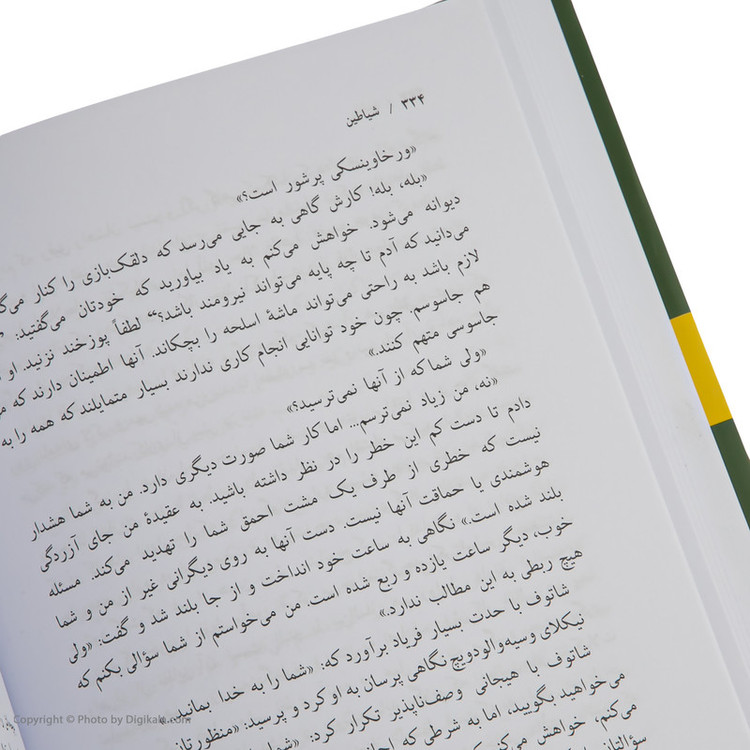 ۳۳۴ / شیاطین
«ورخاوینسکی پرشور است؟»
«بله، بله! کارش گاهی به جایی می‌رسد که دلقک‌بازی را کنار
دیوانه می‌شود. خواهش می‌کنم به یاد بیاورید که خودتان می‌گفتید:
می‌دانید که آدم تا چه پایه می‌تواند نیرومند باشد؟“ لطفاً پوزخند نزنید. او
لازم باشد به راحتی می‌تواند ماشهٔ اسلحه را بچکاند. آنها اطمینان دارند که
هم جاسوسم. چون خود توانایی انجام کاری ندارند بسیار متمایلند که همه را به
جاسوسی متهم کنند.»
«ولی شما که از آنها نمی‌ترسید؟»
«نه، من زیاد نمی‌ترسم... اما کار شما صورت دیگری دارد. من به شما هشدار
دادم تا دست کم این خطر را در نظر داشته باشید. به عقیدهٔ من جای آزردگی
نیست که خطری از طرف یک مشت احمق شما را تهدید می‌کند. مسئله
هوشمندی یا حماقت آنها نیست. دست آنها به روی دیگرانی غیر از من و شما
بلند شده است.» نگاهی به ساعت خود انداخت و از جا بلند شد و گفت: «ولی
خوب، دیگر ساعت یازده و ربع شده است. من می‌خواستم از شما سؤالی بکنم که
هیچ ربطی به این مطالب ندارد.»
شاتوف با حدت بسیار فریاد برآورد که: «شما را به خدا بمانید.»
نیکلای وسیه‌والودویچ نگاهی پرسان به او کرد و پرسید: «منظورتان
شاتوف با هیجانی وصف‌ناپذیر تکرار کرد:
می‌خواهید بگویید، اما به شرطی که
می‌کنم، خواهش
سؤالتان
Copyright © Photo by Digikala.com